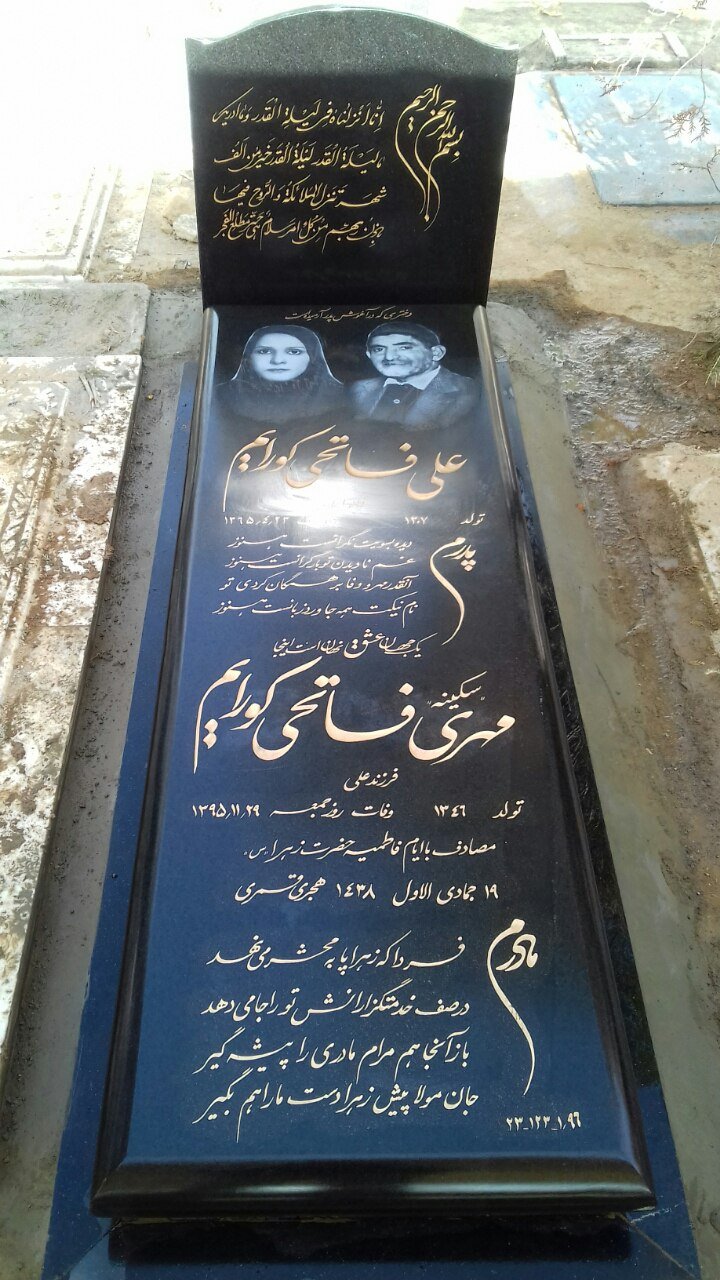 بسم الله الرحمن الرحیم
إنا أنزلناه في ليلة القدر وما أدريك
ما ليلة القدر ليلة القدر خير من ألف
شهر تنزل الملائكة والروح فيها
بإذن ربهم من كل أمر سلام هي حتى مطلع الفجر
دختری که در آغوش پدر آرمیده است
علی فاتحی کورایم
تولد ۱۳۰۷ ۱۳۶۵٫۴٫۲۳
پدرم
دیده بسویت نگرانست هنوز
غم نادیدن تو بار گرانست هنوز
آنقدر مهر و وفا بر همگان کردی تو
نام نیکت همه جا ورد زبانست هنوز
یک جهان عشق نهان است اینجا
"سکینه"
مهری فاتحی کورایم
فرزند علی
تولد ۱۳٤٦ وفات روز جمعه ۱۳۹۵٫۱۱٫۲۹
مصادف با ایام فاطمیه حضرت زهرا (س)
۱۹ جمادی الاول ۱۴۳۸ هجری قمری
مادرم
فردا که زهرا پا به محشر می نهد
در صف خدمتگزارانش تو را جا می دهد
باز آنجا هم مرام مادری را پیشه گیر
جان مولا پیش زهرا دست ما را هم بگیر
۲۳-۱۲۳-۱٫۹۶